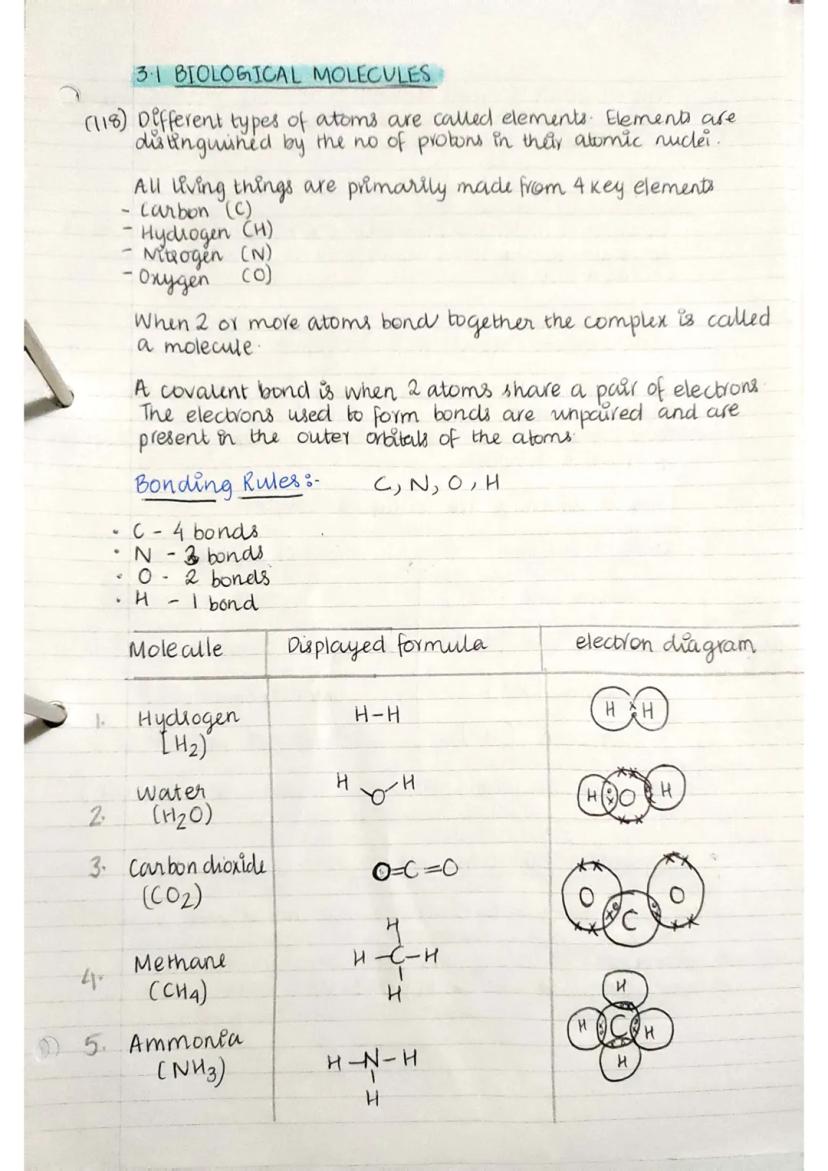 3.1 BIOLOGICAL MOLECULES
(118) Different types of atoms are called elements. Elements are
distinguished by the no of protons in their atomic nuclei.
All living things are primarily made from 4 key elements
- Carbon (C)
- Hydrogen (H)
- Nitrogen (N)
- Oxygen (O)
When 2 or more atoms bond together the complex is called
a molecule.
A covalent bond is when 2 atoms share a pair of electrons.
The electrons used to form bonds are unpaired and are
present in the outer orbitals of the atoms.
Bonding Rules :- C, N, O, H
• C - 4 bonds
• N - 3 bonds
• O - 2 bonds
• H - 1 bond
Molecule Displayed formula electron diagram
1. Hydrogen H-H H H
[H2)
Water H O H H O H
2. (H2O)
3. Carbon dioxide O=C=O O C O
(CO2)
H
Methane H-C-H H
4. (CH4) H H C H
5. Ammonia H
(NH3) H-N-H
H